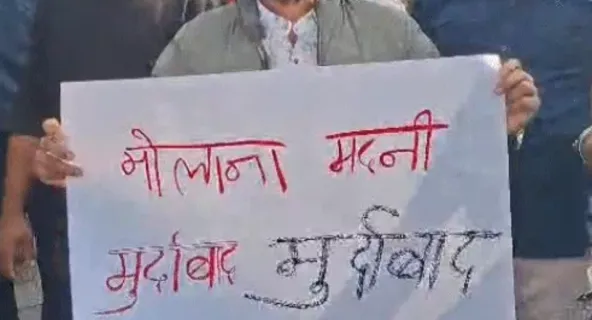 मोलाना मदनी
मुर्दाबाद मुर्दाबाद